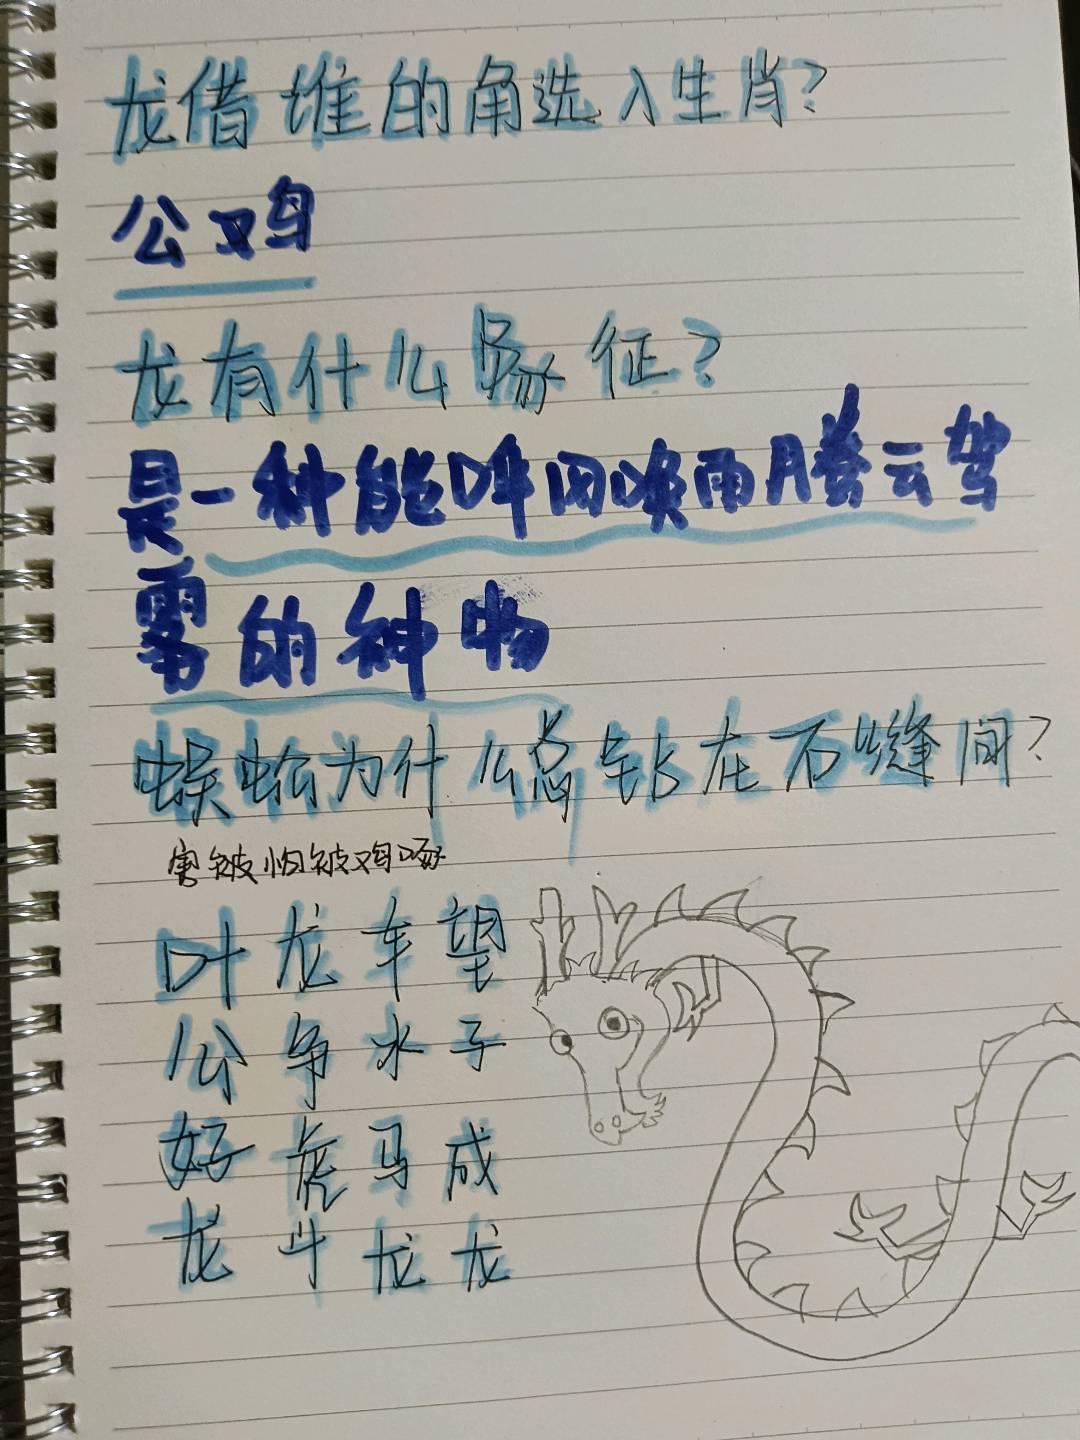 龙借谁的角选入生肖?
公鸡
龙有什么象征?
是一种能呼风唤雨腾云驾
雾的神物
蜈蚣为什么总钻在石缝间?
害被怕被鸡啄
叶龙车望
公争水子
好虎马成
龙斗龙龙